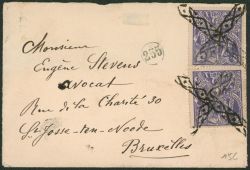 Monsieur
Eugène Stevens
avocat
Rue de la Charité 30
St Josse-ten-Noode
Bruxelles
255